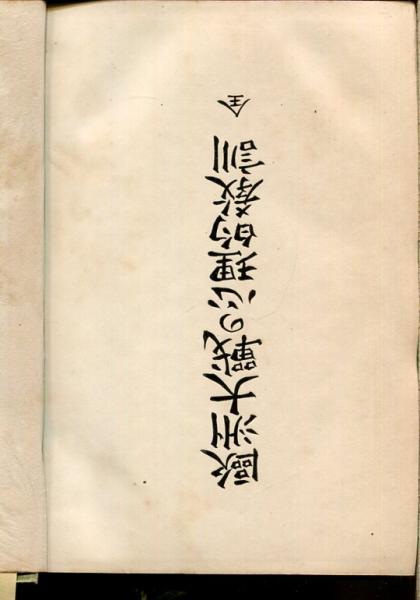 歐洲大戰の心理的教訓 全